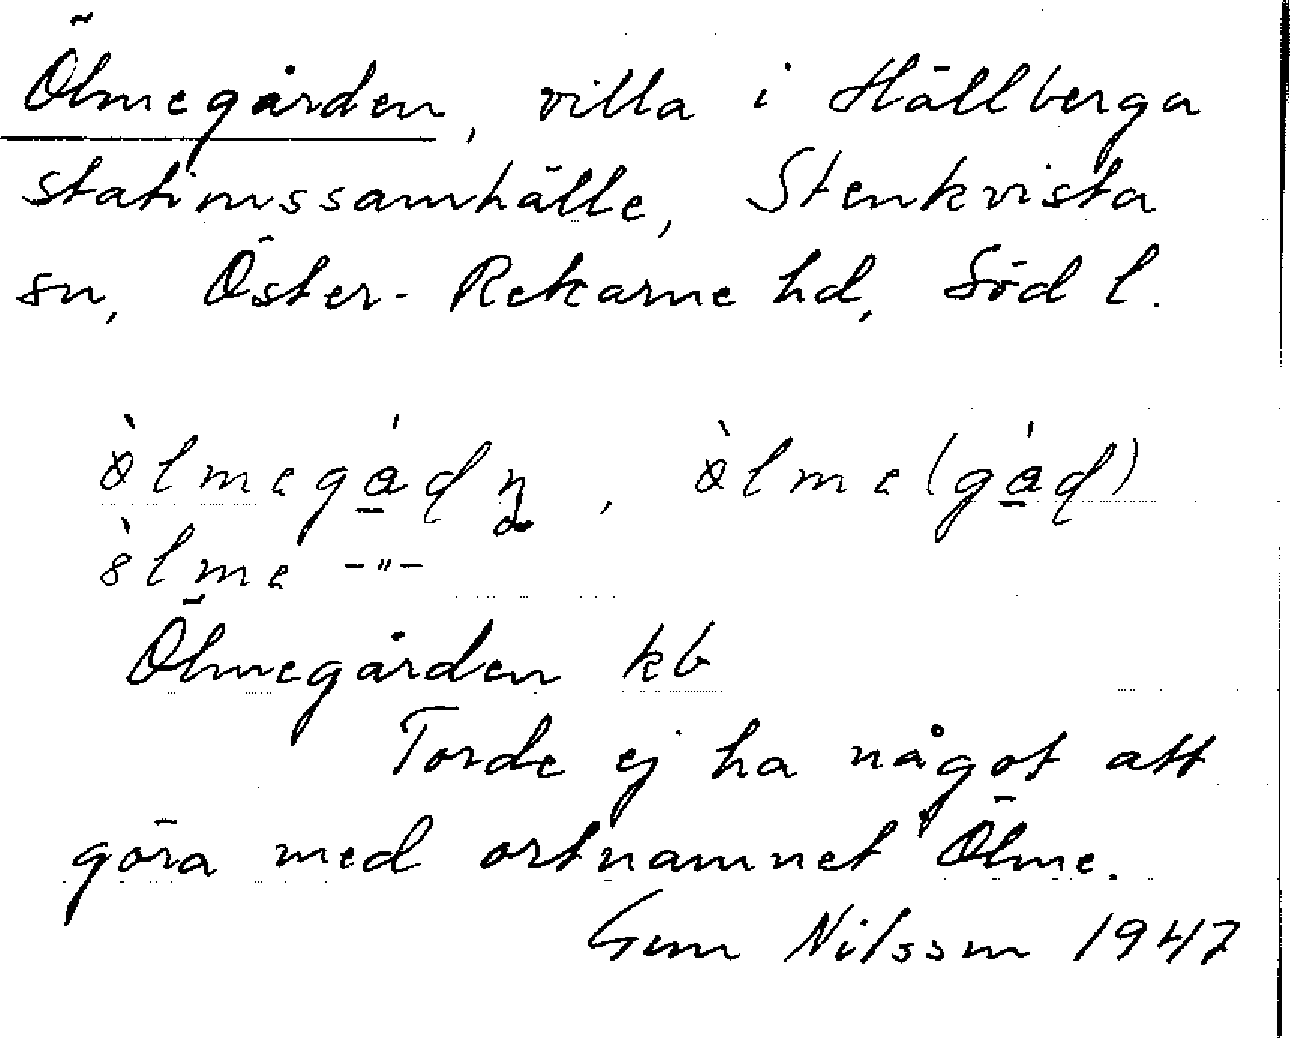 Ölmegården, villa i Hällberga
stationssamhälle, Stenkvista
sn, Öster-Rekarne hd, Söd l.
ölmegåḍṇ, ölme(gåḍ)
ölme -"-
Ölmegården kb
Torde ej ha något att
göra med ortnamnet Ölme.
Gun Nilsson 1947